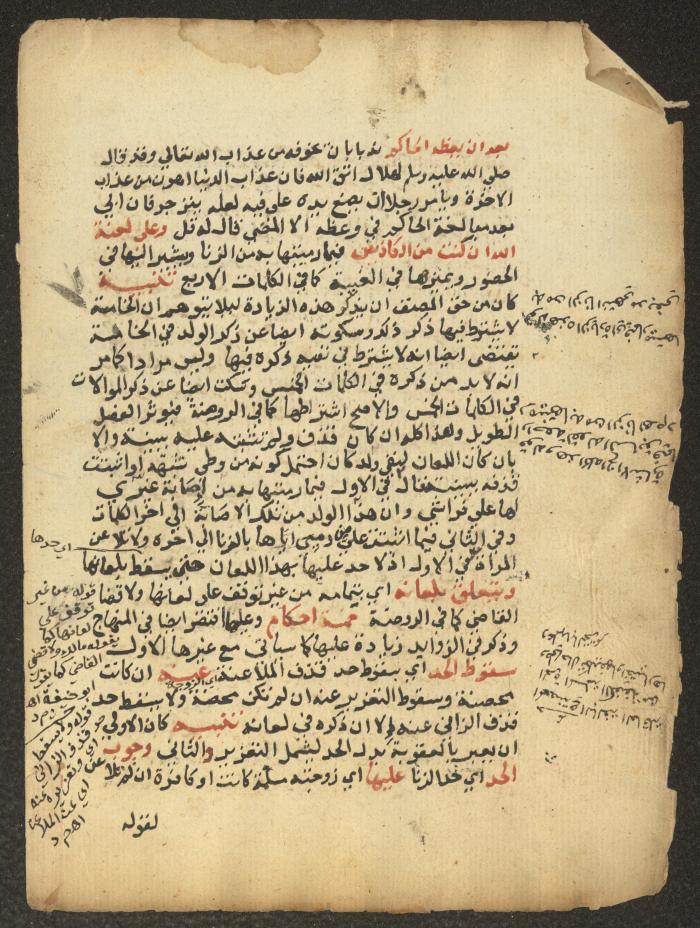 بعد ان يعظه الحاكم ندبا بان يخوفه من عذاب الله تعالى وقد قال
صلى الله عليه وسلم لهلال اتق الله فان عذاب الدنيا اهون من عذاب
الاخرة ويامر رجلا ان يضع يده على فيه لعله ينزجر فان ابى
بعد مبالغة الحاكم في وعظه الا المضي قال له قل وعلى لعنة
الله ان كنت من الكاذبين فيما رميتها به من الزنا ويشير اليها في
الحضور ويميزها في الغيبة كما في الكلمات الاربع تنبيه
كان من حق المصنف ان يذكر هذه الزيادة ليلا يتوهم ان الخامسة
لا يشترط فيها ذكر ذلك وسكوته ايضا عن ذكر الولد في الخامسة
يقتضي ايضا انه لا يشترط في نفيه ذكره فيها وليس مرادا كما مر
انه لا بد من ذكره في الكلمات الخمس وسكت ايضا عن ذكر الموالات
في الكلمات الخمس والاصح اشتراطها كما في الروضة فيوثر الفصل
الطويل وهذا كله ان كان قذف ولم تثبته عليه ببينة والا
بان كان اللعان لنفي ولد كان احتمل كونه من وطي شبهة او اثبتت
قذفه ببينة قال في الاول فيما رميتها به من اصابة غيري
لها على فراشي وان هذا الولد من تلك الاصابة الى اخر الكلمات
وفي الثاني فيما اثبتت علي من رميي اياها بالزنا الى اخره ولا تلاعن
المراة في الاول اذ لا حد عليها بهذا اللعان حتى يسقط بلعانها
ويتعلق بلعانه اي بتمامه من غير توقف على لعانها ولا قضا
القاضي كما في الروضة خمسة احكام وعليها اقتصر ايضا في المنهاج
وذكر في الزوايد زيادة عليها كما سياتي مع غيرها الاول
سقوط الحد اي سقوط حد قذف الملاعنة عنه ان كانت
محصنة وسقوط التعزير عنه ان لم تكن محصنة ولا يسقط حد
قذف الزاني عنه الا ان ذكره في لعانه تنبيه كان الاولى
ان يعبر بالعقوبة بدل الحد ليشمل التعزير والثاني وجوب
الحد اي حد الزنا عليها اي زوجته مسلمة كانت او كافرة ان لم تلاعن
لقوله
اي حدها
اي الزوجة
قوله من غير
توقف على
لعانها
القاضي
ابو حنيفة اهـ
م د
قوله ولا يسقط
حد قذف الزاني
عنه
اهـ م د